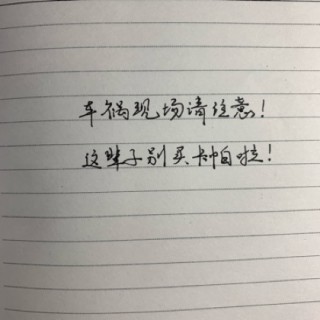 车祸现场请注意！
这辈子别买卡帕啦！